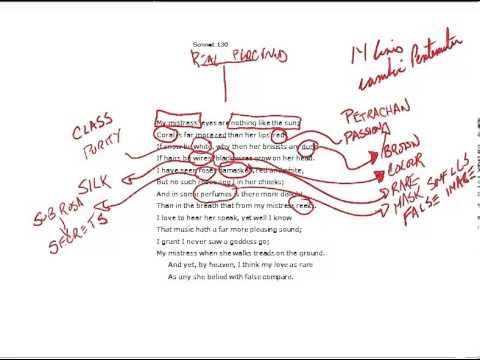 Sonnet 130
REAL PERCEIVED
14 lines
iambic Pentameter
My mistress' eyes are nothing like the sun;
Coral is far more red than her lips' red;
If snow be white, why then her breasts are dun;
If hairs be wires, black wires grow on her head.
I have seen roses damasked, red and white,
But no such roses see I in her cheeks;
And in some perfumes is there more delight
Than in the breath that from my mistress reeks.
I love to hear her speak, yet well I know
That music hath a far more pleasing sound;
I grant I never saw a goddess go;
My mistress when she walks treads on the ground.
And yet, by heaven, I think my love as rare
As any she belied with false compare.
CLASS
PURITY
SILK
SUB ROSA
SECRETS
PETRACHAN
PASSION
BROWN
COLOUR
RARE
MASK SMELLS
FALSE IMAGE